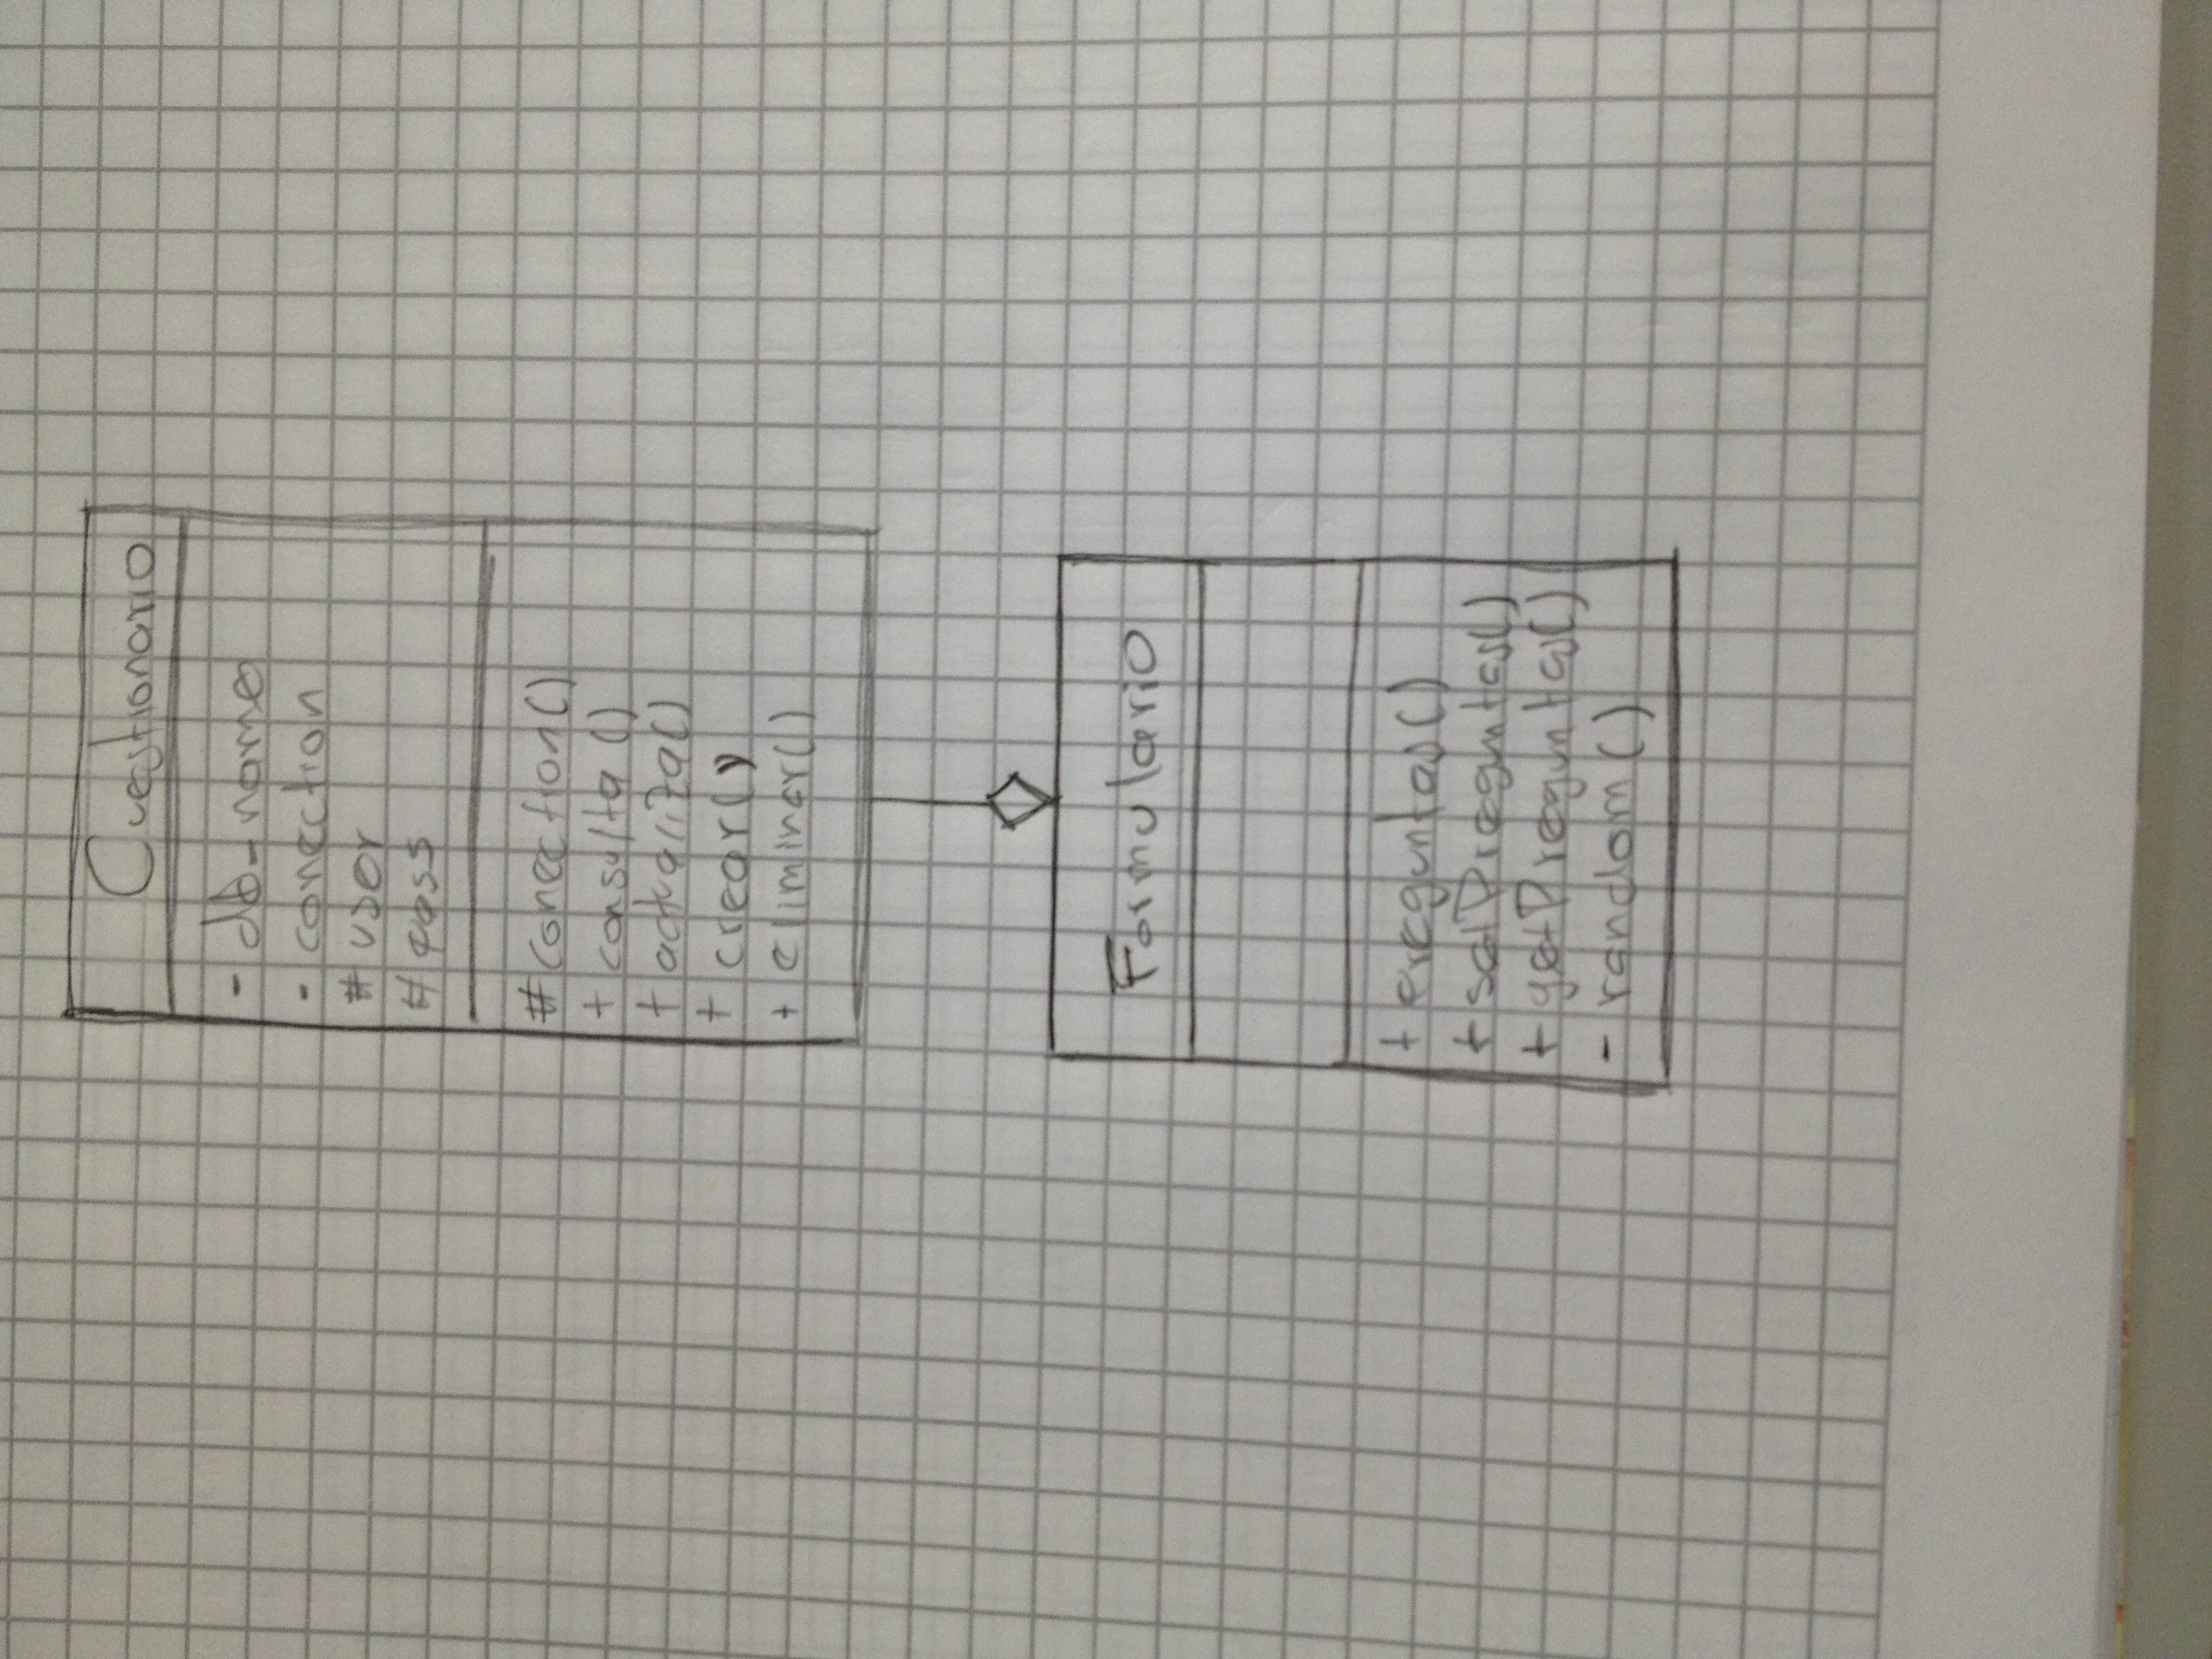 Cuestionario
- db_name
- conection
# user
# pass
# conection()
+ consulta ()
+ actualiza()
+ crear()
+ eliminar()
Formulario
+ preguntas()
+ setPreguntas()
+ getPreguntas()
- random()